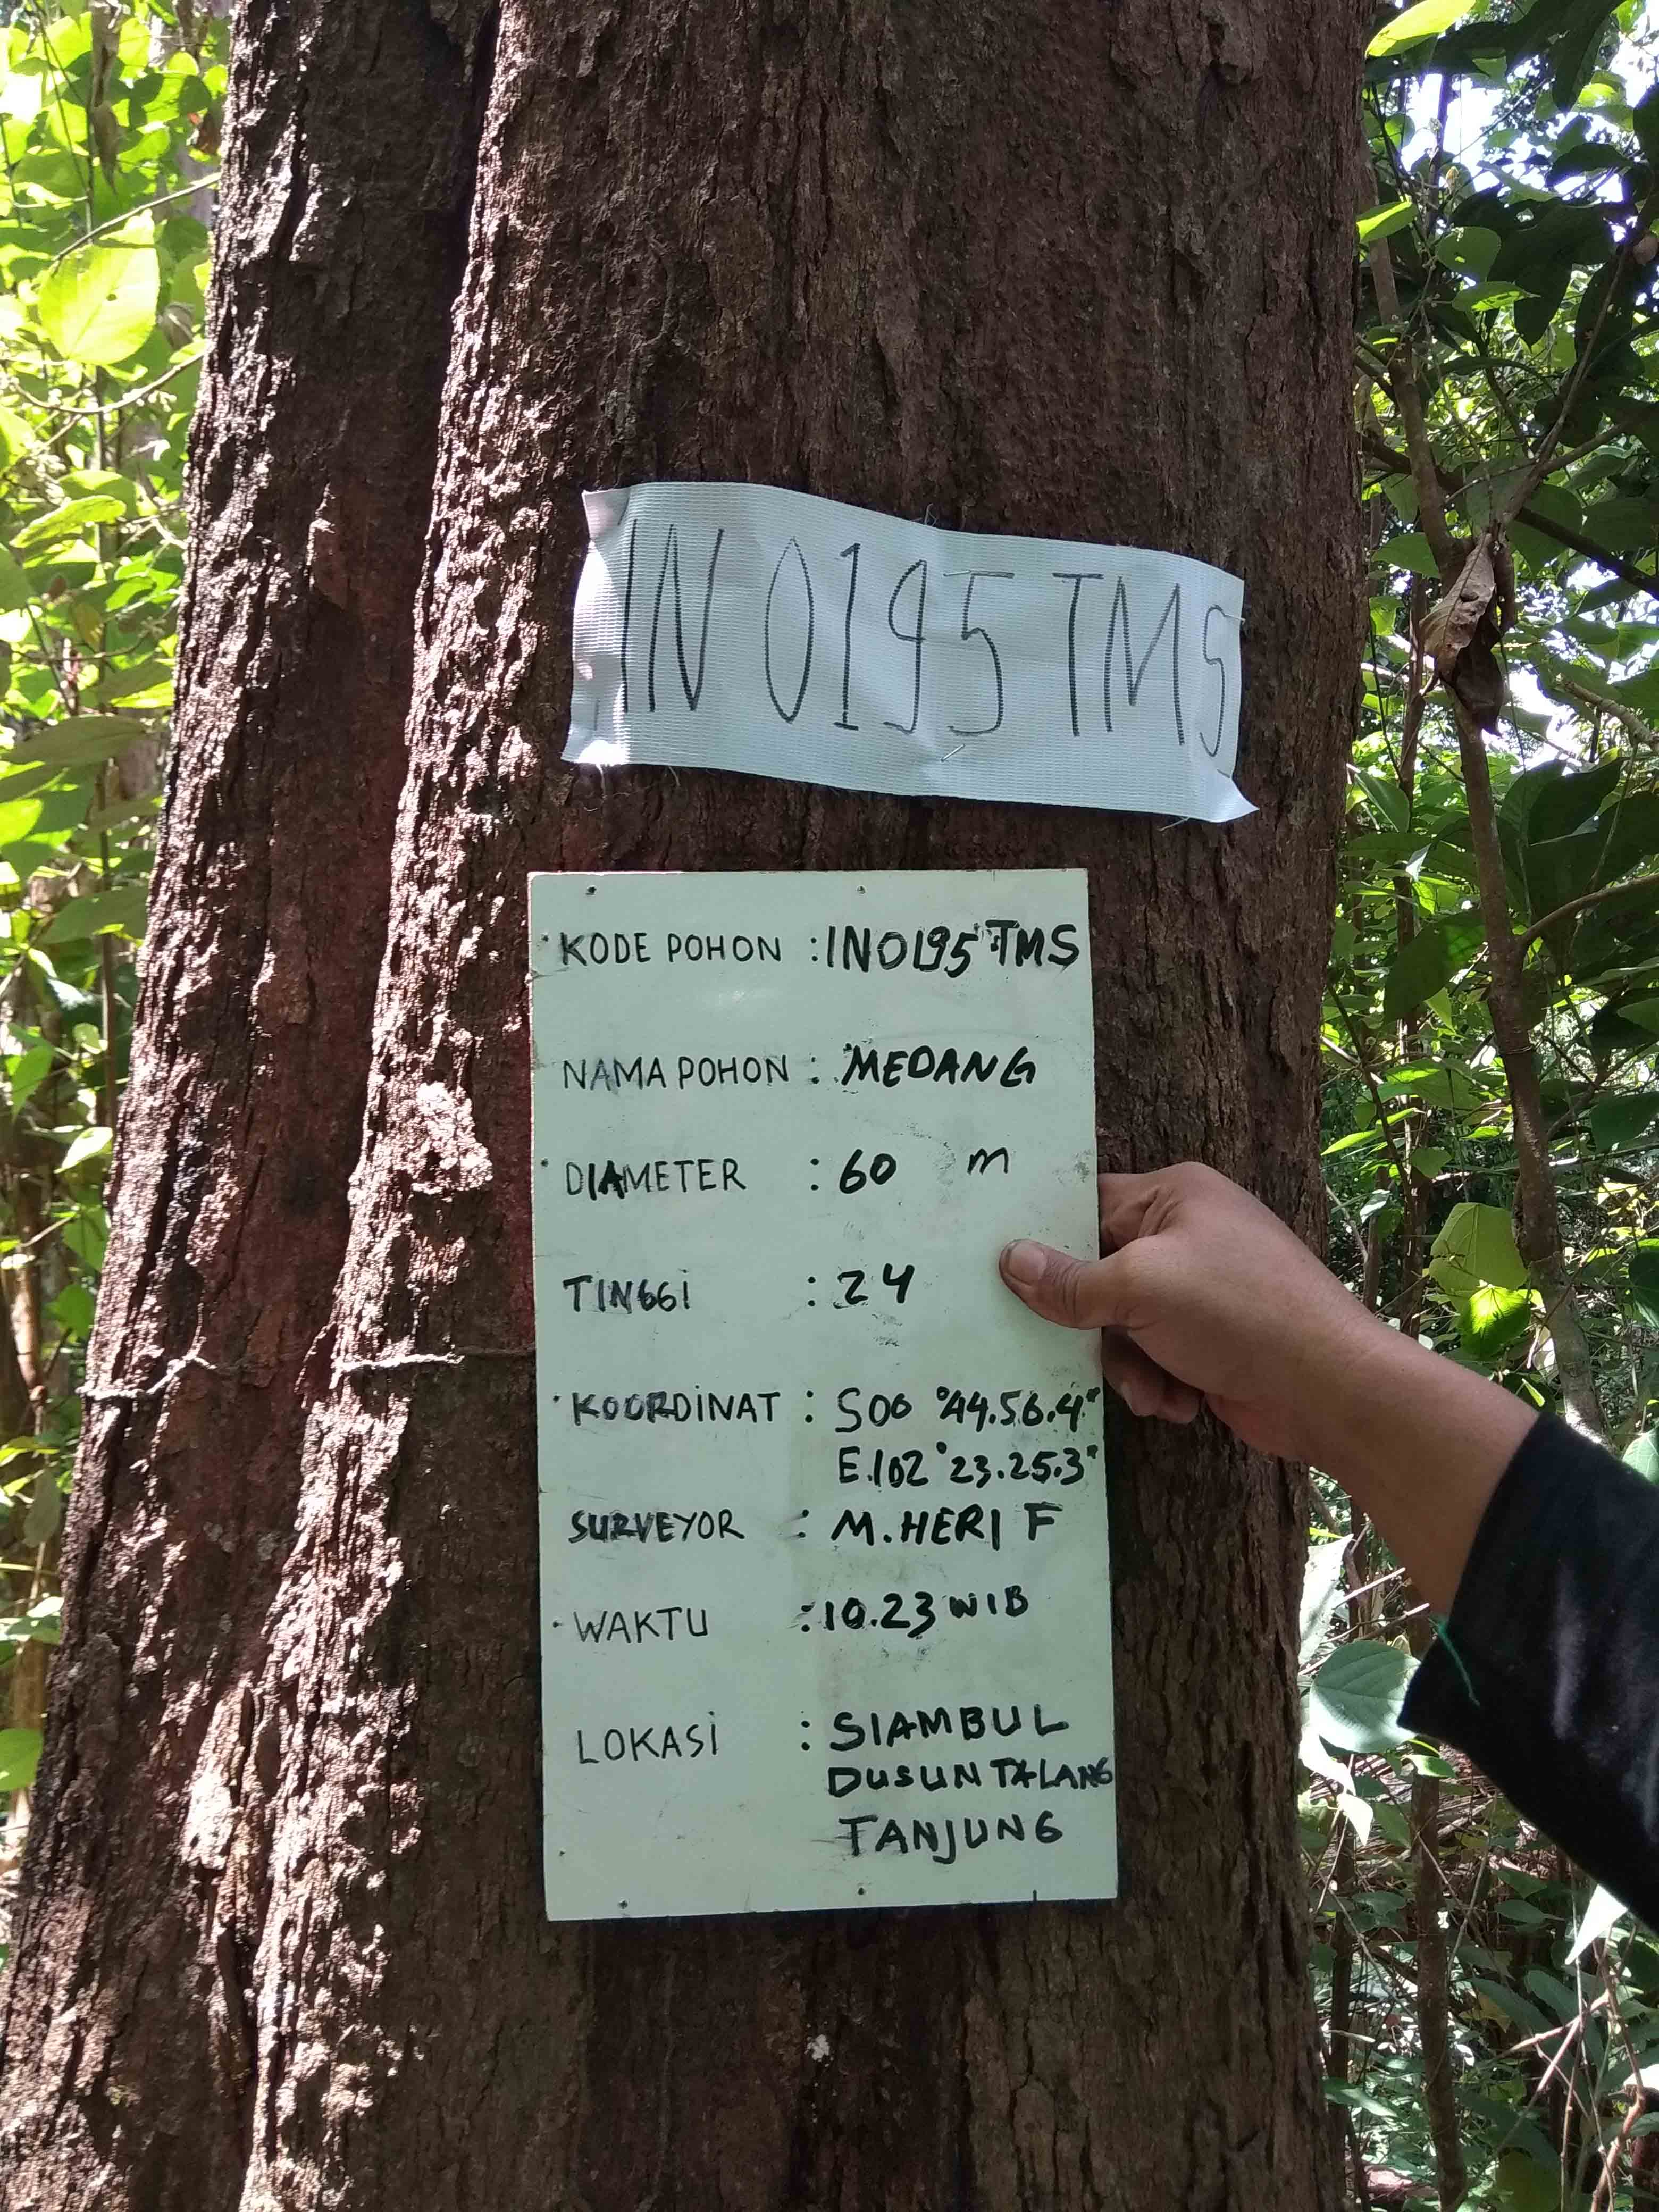 IN 0195 TMS
KODE POHON : IN0195 TMS
NAMA POHON : MEDANG
DIAMETER : 60 m
TINGGI : 24
KOORDINAT : S00 °44.56.4"
E.102°23.25.3"
SURVEYOR : M.HERI F
WAKTU : 10.23 WIB
LOKASI : SIAMBUL
DUSUN TALANG
TANJUNG